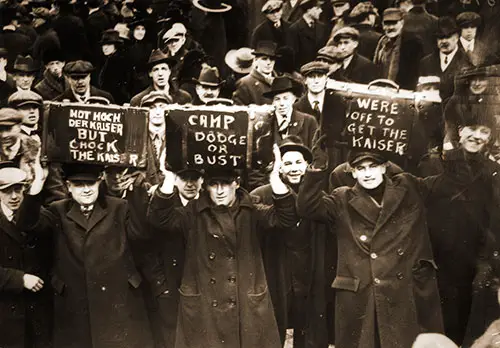 NOT HOCH
DER KAISER
BUT
CHOCK
THE KAISER
CAMP
DODGE
OR
BUST
WERE
OFF TO
GET THE
KAISER